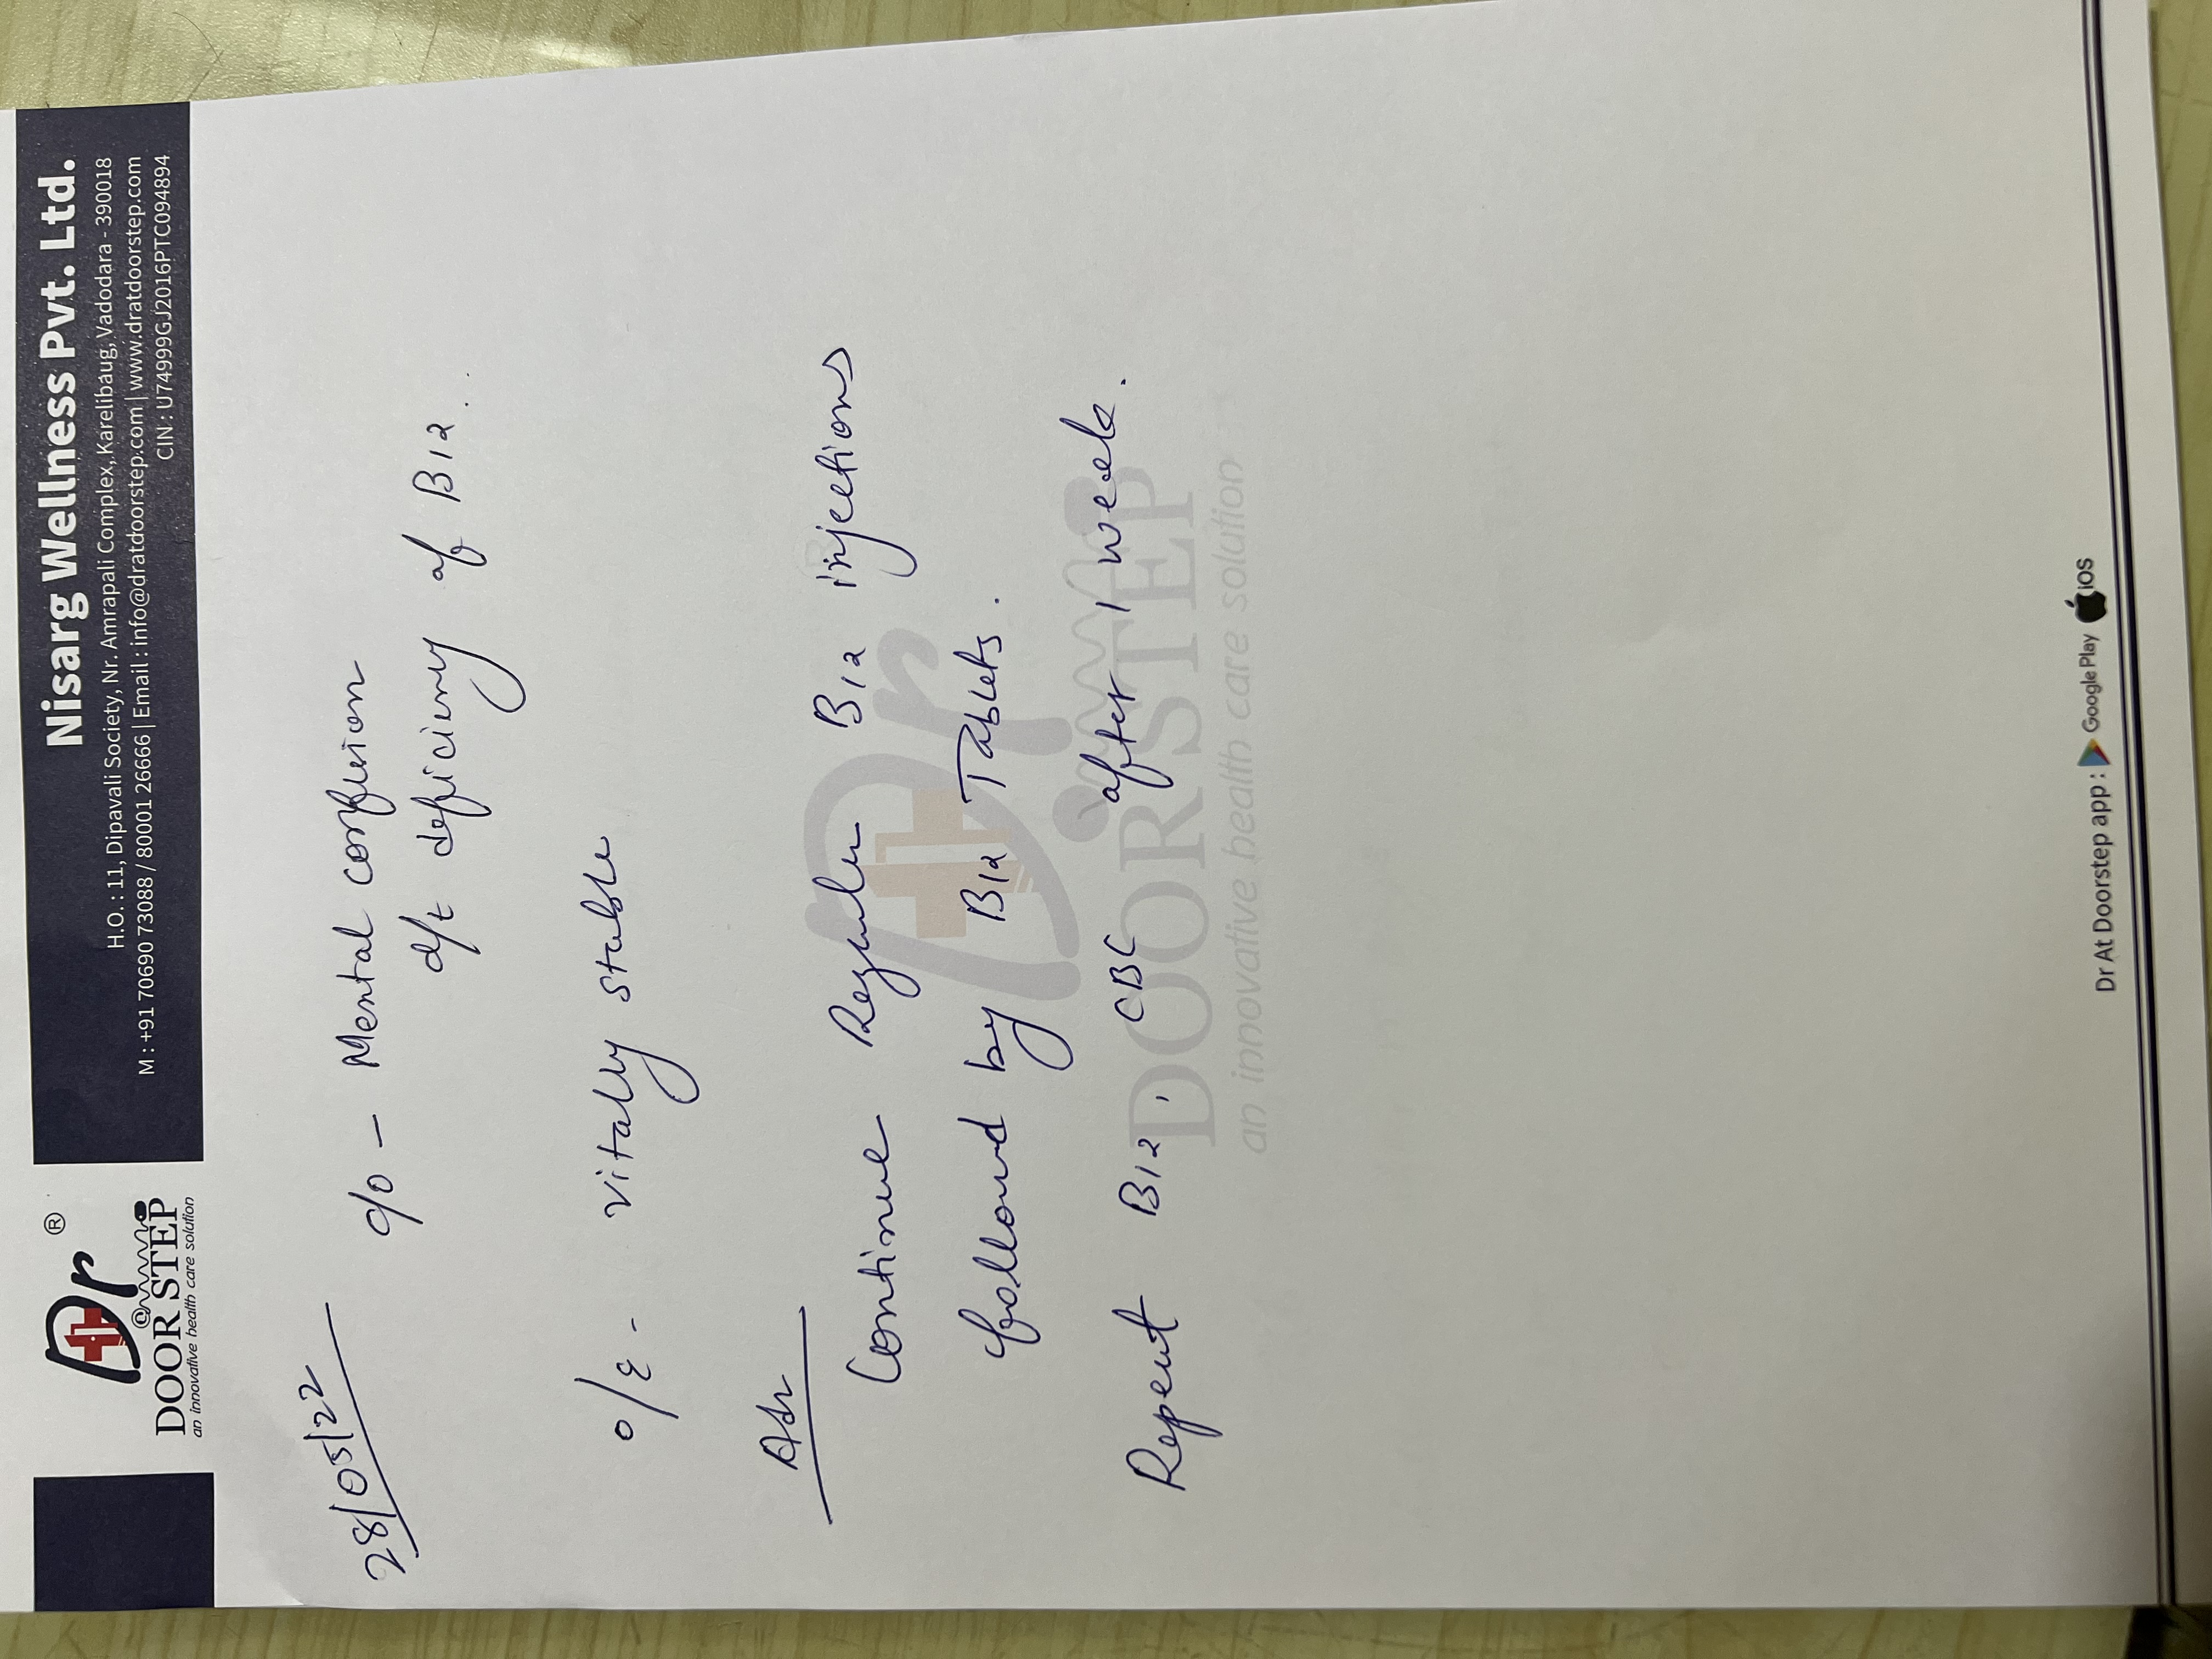 Dr ®
@
DOOR STEP
an innovative health care solution
Nisarg Wellness Pvt. Ltd.
H.O. : 11, Dipavali Society, Nr. Amrapali Complex, Karelibaug, Vadodara - 390018
M : +91 70690 73088 / 80001 26666 | Email : info@dratdoorstep.com | www.dratdoorstep.com
CIN : U74999GJ2016PTC094894
28/05/22
c/o - Mental confusion
d/t deficiency of B12.
o/e - vitally stable
Adv
Continue Regular B12 injections
followed by B12 Tablets.
Repeat B12, CBC after 1 week.
Dr
DOOR STEP
an innovative health care solution
Dr At Doorstep app : Google Play iOS